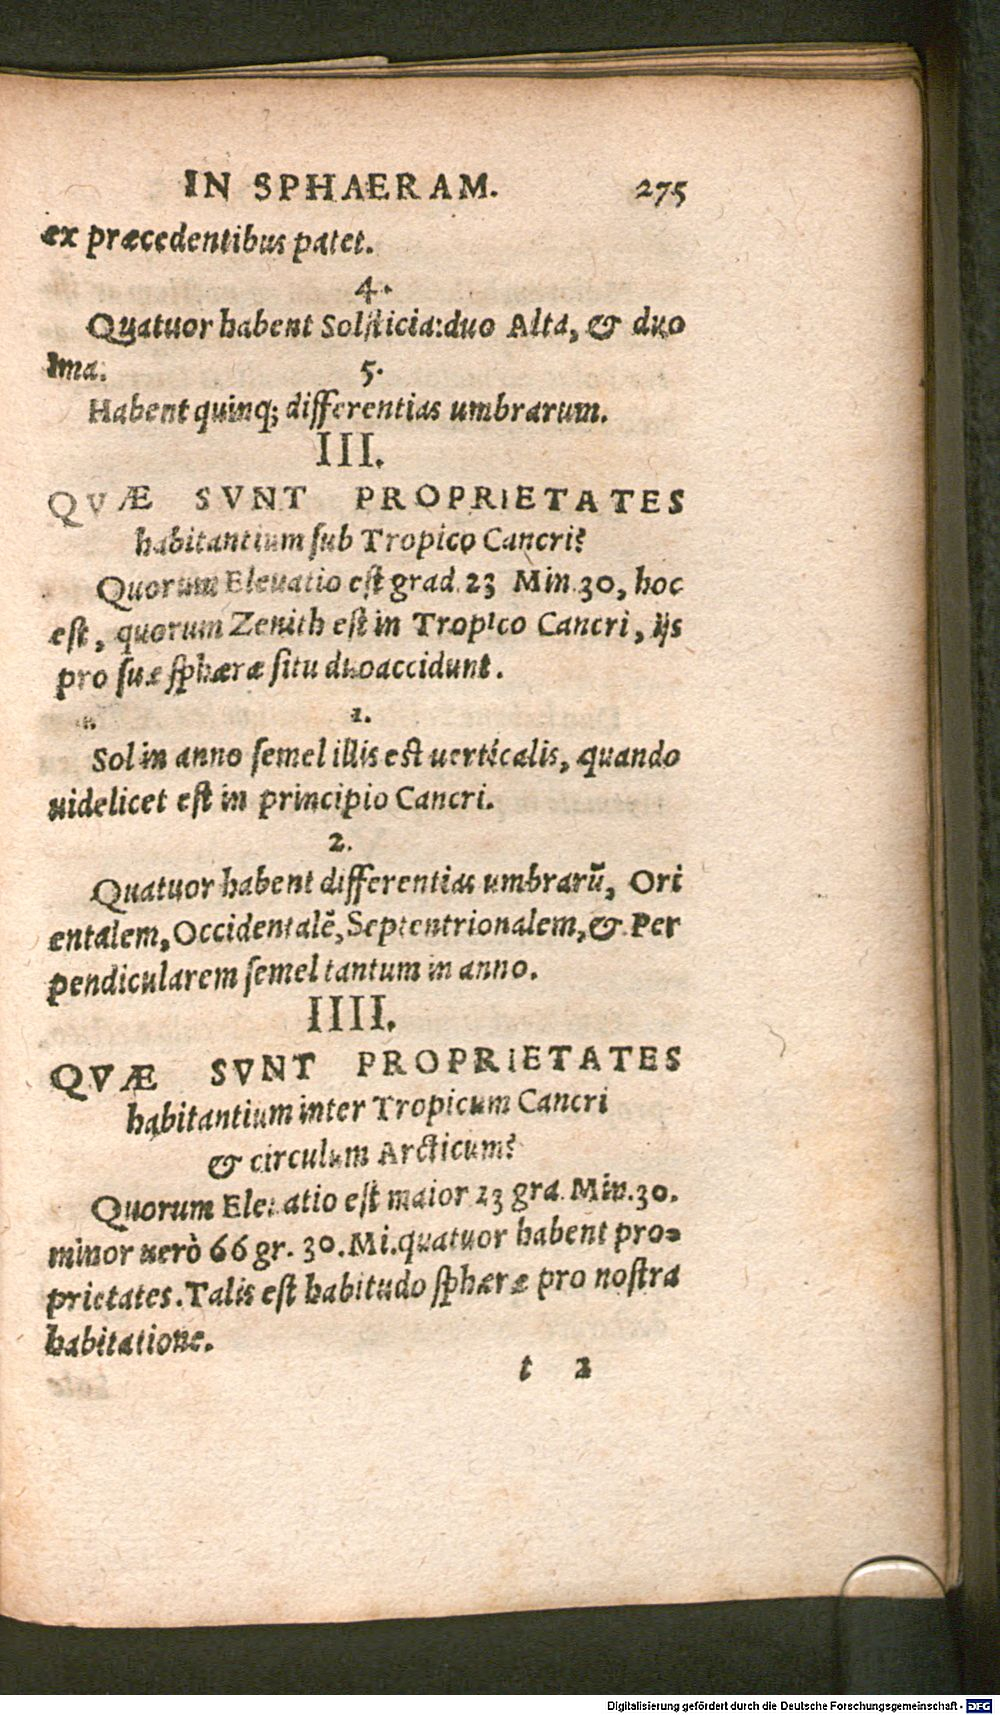 IN SPHAERAM. 275
ex præcedentibus patet.
4.
Quatuor habent Solſticia: duo Alta, & duo
Ima. 5.
Habent quinq; differentias umbrarum.
III.
QVÆ SVNT PROPRIETATES
habitantium ſub Tropico Cancri?
Quorum Eleuatio eſt grad. 23 Min. 30, hoc
eſt, quorum Zenith eſt in Tropico Cancri, ijs
pro ſuæ ſphæræ ſitu duo accidunt.
1.
Sol in anno ſemel illis eſt uerticalis, quando
uidelicet eſt in principio Cancri.
2.
Quatuor habent differentias umbrarū, Ori
entalem, Occidentalē, Septentrionalem, & Per
pendicularem ſemel tantum in anno.
IIII.
QVÆ SVNT PROPRIETATES
habitantium inter Tropicum Cancri
& circulum Arcticum?
Quorum Eleuatio eſt maior 23 gra. Min. 30.
minor uerò 66 gr. 30. Mi. quatuor habent pro-
prietates. Talis eſt habitudo ſphæræ pro noſtra
habitatione.
t 2
Digitalisierung gefördert durch die Deutsche Forschungsgemeinschaft - DFG